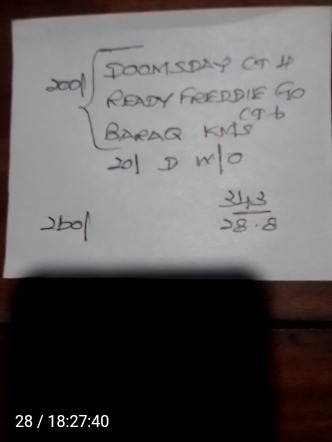 200/
DOOMSDAY CT 4
READY FREDDIE GO
CT 6
BARAQ KMS
20/ D W/O
260/
343
28.8
28 / 18:27:40